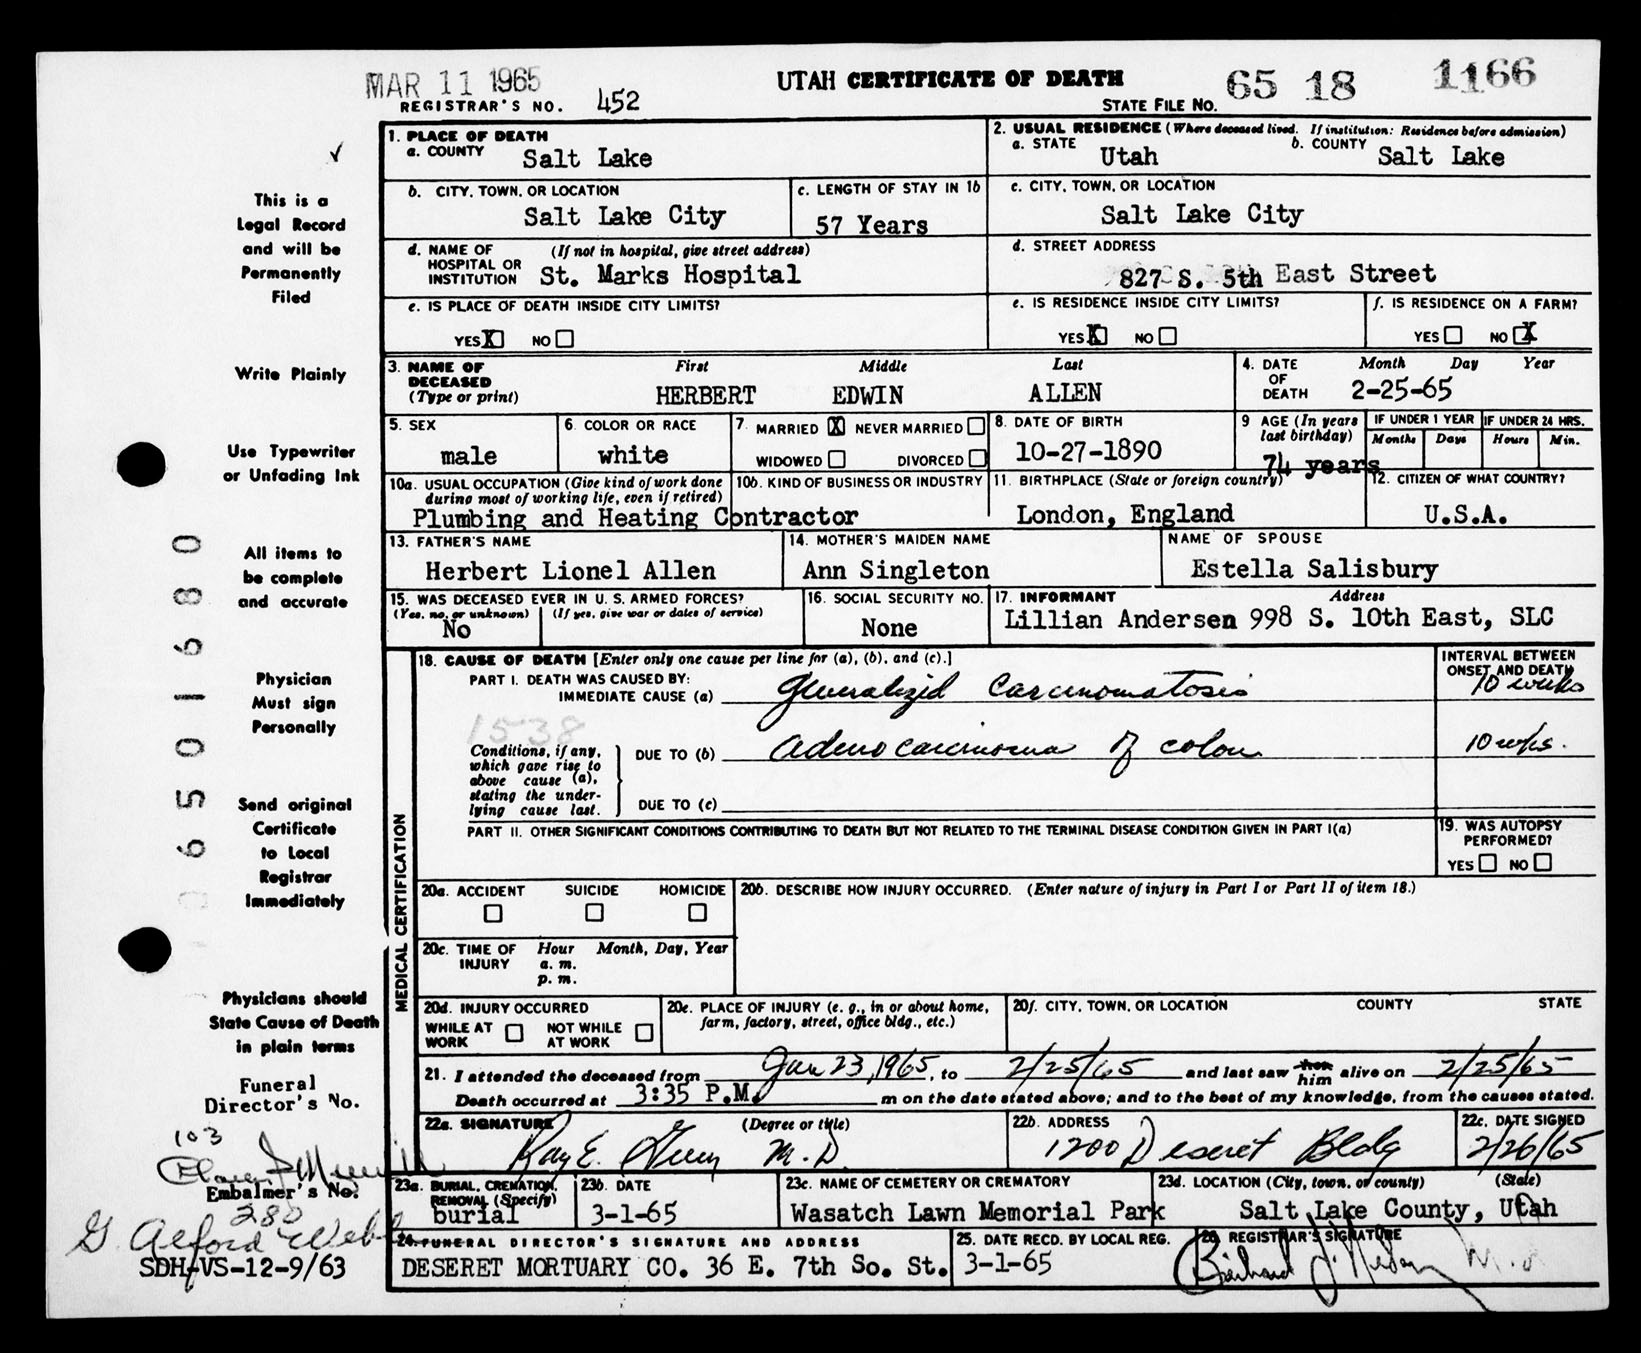 MAR 11 1965
UTAH CERTIFICATE OF DEATH
65 18 1166
REGISTRAR'S NO. 452
STATE FILE NO.
1. PLACE OF DEATH
a. COUNTY Salt Lake
2. USUAL RESIDENCE (Where deceased lived. If institution: Residence before admission)
a. STATE Utah b. COUNTY Salt Lake
b. CITY, TOWN, OR LOCATION Salt Lake City
c. LENGTH OF STAY IN 1b 57 Years
c. CITY, TOWN, OR LOCATION Salt Lake City
d. NAME OF HOSPITAL OR INSTITUTION (If not in hospital, give street address) St. Marks Hospital
d. STREET ADDRESS 827 S. 5th East Street
e. IS PLACE OF DEATH INSIDE CITY LIMITS? YES X NO
e. IS RESIDENCE INSIDE CITY LIMITS? YES X NO
f. IS RESIDENCE ON A FARM? YES NO X
3. NAME OF DECEASED (Type or print) First HERBERT Middle EDWIN Last ALLEN
4. DATE OF DEATH Month Day Year 2-25-65
5. SEX male
6. COLOR OR RACE white
7. MARRIED X NEVER MARRIED WIDOWED DIVORCED
8. DATE OF BIRTH 10-27-1890
9 AGE (In years last birthday) 74 years
IF UNDER 1 YEAR Months Days
IF UNDER 24 HRS. Hours Min.
10a. USUAL OCCUPATION (Give kind of work done during most of working life, even if retired)
10b. KIND OF BUSINESS OR INDUSTRY
Plumbing and Heating Contractor
11. BIRTHPLACE (State or foreign country) London, England
12. CITIZEN OF WHAT COUNTRY? U.S.A.
13. FATHER'S NAME Herbert Lionel Allen
14. MOTHER'S MAIDEN NAME Ann Singleton
NAME OF SPOUSE Estella Salisbury
15. WAS DECEASED EVER IN U. S. ARMED FORCES? (Yes, no, or unknown) (If yes, give war or dates of service) No
16. SOCIAL SECURITY NO. None
17. INFORMANT Address Lillian Andersen 998 S. 10th East, SLC
MEDICAL CERTIFICATION
18. CAUSE OF DEATH [Enter only one cause per line for (a), (b), and (c).]
INTERVAL BETWEEN ONSET AND DEATH
PART I. DEATH WAS CAUSED BY:
IMMEDIATE CAUSE (a) Generalized Carcinomatosis 10 weeks
1538
Conditions, if any, which gave rise to above cause (a), stating the underlying cause last.
DUE TO (b) Adenocarcinoma of colon 10 wks.
DUE TO (c)
PART II. OTHER SIGNIFICANT CONDITIONS CONTRIBUTING TO DEATH BUT NOT RELATED TO THE TERMINAL DISEASE CONDITION GIVEN IN PART I(a)
19. WAS AUTOPSY PERFORMED? YES NO
20a. ACCIDENT SUICIDE HOMICIDE
20b. DESCRIBE HOW INJURY OCCURRED. (Enter nature of injury in Part I or Part II of item 18.)
20c. TIME OF INJURY Hour Month, Day, Year
a. m.
p. m.
20d. INJURY OCCURRED WHILE AT WORK NOT WHILE AT WORK
20e. PLACE OF INJURY (e. g., in or about home, farm, factory, street, office bldg., etc.)
20f. CITY, TOWN, OR LOCATION COUNTY STATE
21. I attended the deceased from Jan 23, 1965, to 2/25/65 and last saw her him alive on 2/25/65
Death occurred at 3:35 P.M. m on the date stated above; and to the best of my knowledge, from the causes stated.
22a. SIGNATURE (Degree or title) Ray E. M.D.
22b. ADDRESS 1200 Deseret Bldg
22c. DATE SIGNED 2/26/65
23a. BURIAL, CREMATION, REMOVAL (Specify) burial
23b. DATE 3-1-65
23c. NAME OF CEMETERY OR CREMATORY Wasatch Lawn Memorial Park
23d. LOCATION (City, town, or county) (State) Salt Lake County, Utah
24. FUNERAL DIRECTOR'S SIGNATURE AND ADDRESS DESERET MORTUARY CO. 36 E. 7th So. St.
25. DATE RECD. BY LOCAL REG. 3-1-65
26. REGISTRAR'S SIGNATURE M.D.
This is a
Legal Record
and will be
Permanently
Filed
Write Plainly
Use Typewriter
or Unfading Ink
All items to
be complete
and accurate
Physician
Must sign
Personally
Send original
Certificate
to Local
Registrar
Immediately
Physicians should
State Cause of Death
in plain terms
Funeral
Director's No.
103
Embalmer's No.
280
G. Alford Webb
SDH-VS-12-9/63
0 6501680